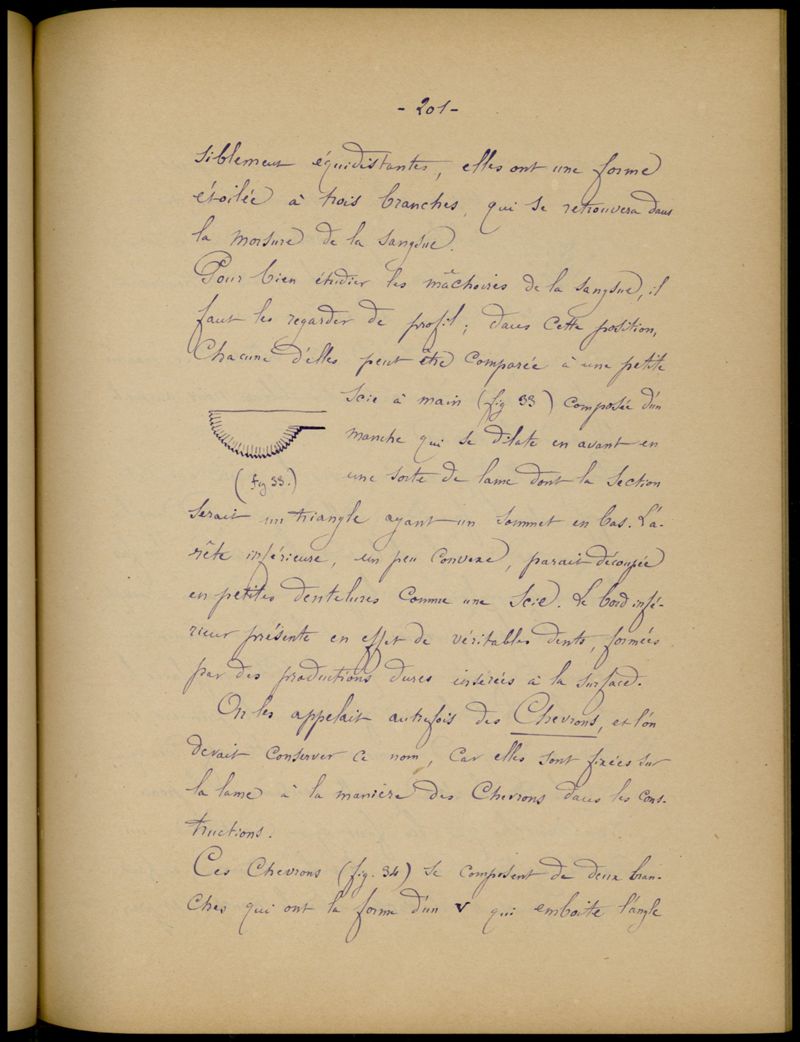 - 201 -
siblement équidistantes, elles ont une forme
étoilée à trois branches, qui se retrouvera dans
la morsure de la sangsue.
Pour bien étudier les mâchoires de la sangsue, il
faut les regarder de profil ; dans cette position,
Chacune d'elles peut être comparée à une petite
scie à main (fig 33) composée d'un
manche qui se dilate en avant en
une sorte de lame dont la section
(fig 33.)
serait un triangle ayant un sommet en bas. L'a-
rête inférieure, un peu convexe, parait découpée
en petites dentelures comme une scie. Le bord infé-
rieur présente en effet de véritables dents, formées
par des productions dures insérées à la surface.
On les appelait autrefois des Chevrons, et l'on
devait conserver ce nom, car elles sont fixées sur
la lame à la manière des Chevrons dans les cons-
tructions.
Ces Chevrons (fig. 34) se composent de deux bran-
ches qui ont la forme d'un V qui emboite l'angle